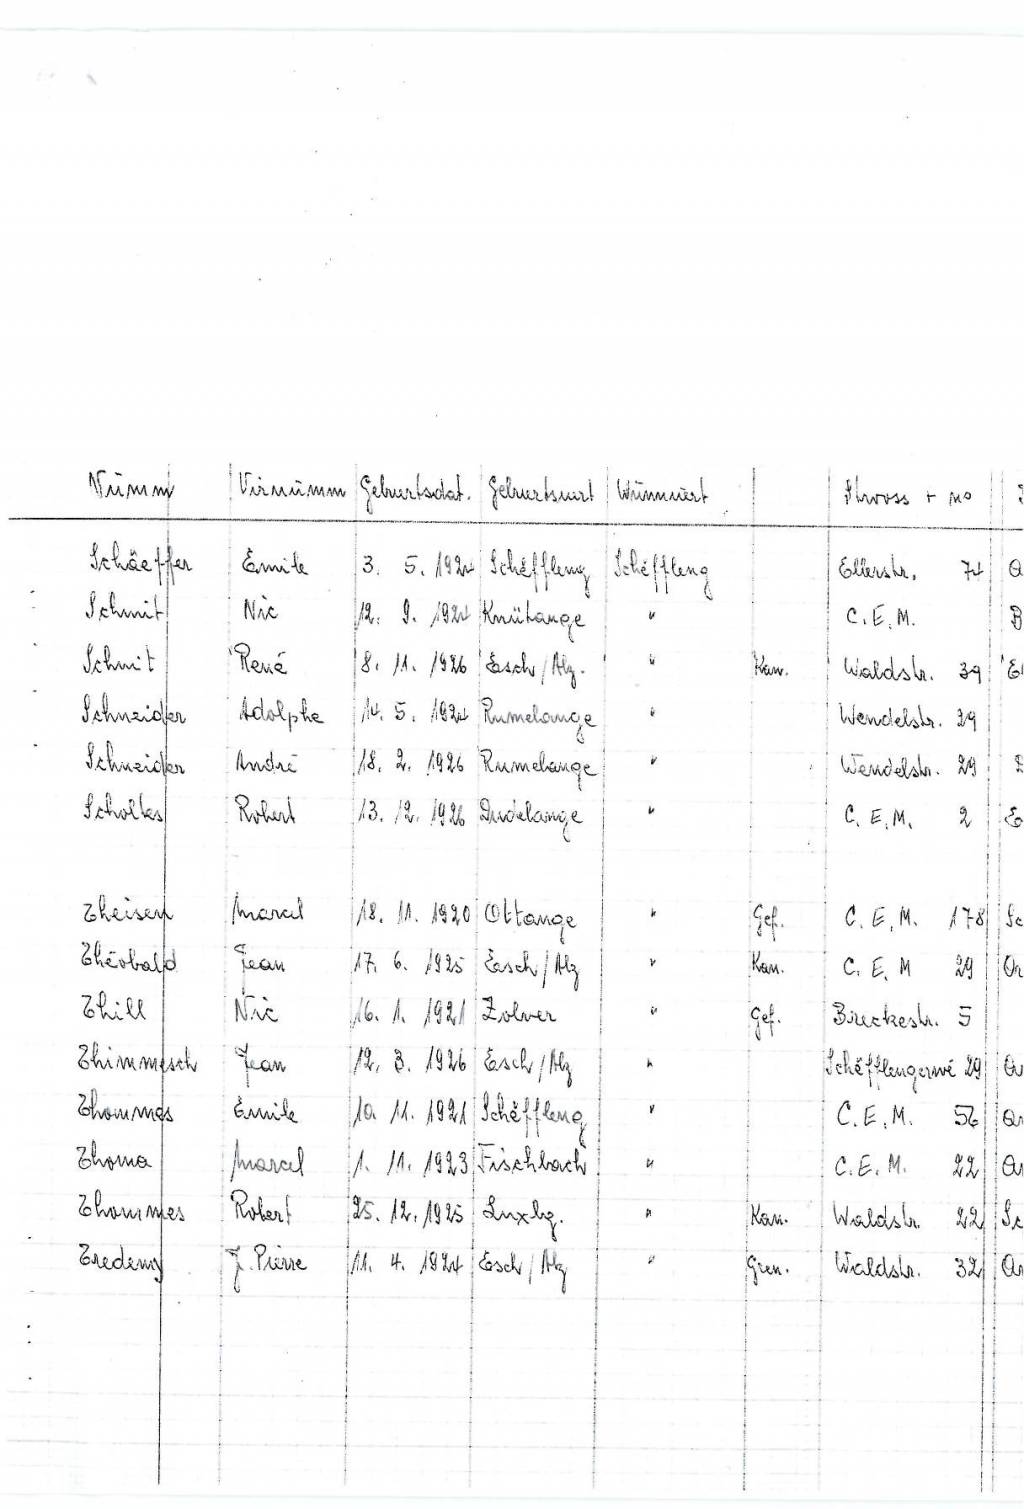 Numm Virnumm Geburtsdat. Geburtsuert Wunnuert Strooss + no
Schäeffer Emile 3. 5. 1924 Schëffleng Schëffleng Ellerstr. 74
Schmit Nic 12. 9. 1924 Knütange " C.E.M. B
Schmit René 8. 11. 1926 Esch/Alz. " Kan. Waldstr. 39
Schneider Adolphe 14. 5. 1924 Rumelange " Wendelstr. 29
Schneider André 18. 2. 1926 Rumelange " Wendelstr. 29
Scholtes Robert 13. 12. 1926 Dudelange " C. E. M. 2 E
Theisen Marcel 18. 11. 1920 Ottange " Gef. C. E. M. 178 Sc
Théobald Jean 17. 6. 1925 Esch/Alz " Kan. C. E. M 29 Ar
Thill Nic 16. 1. 1921 Zolver " Gef. Breckestr. 5
Thimmesch Jean 12. 3. 1926 Esch/Alz " Schëfflengerwé 29 Ar
Thommes Emile 10. 11. 1921 Schëffleng " C. E. M. 56 Ar
Thoma Marcel 1. 11. 1923 Fischbach " C. E. M. 22 Ar
Thommes Robert 25. 12. 1925 Luxbg. " Kan. Waldstr. 22 Sc
Tredemy J. Pierre 11. 4. 1924 Esch/Alz " Gren. Waldstr. 32 Ar